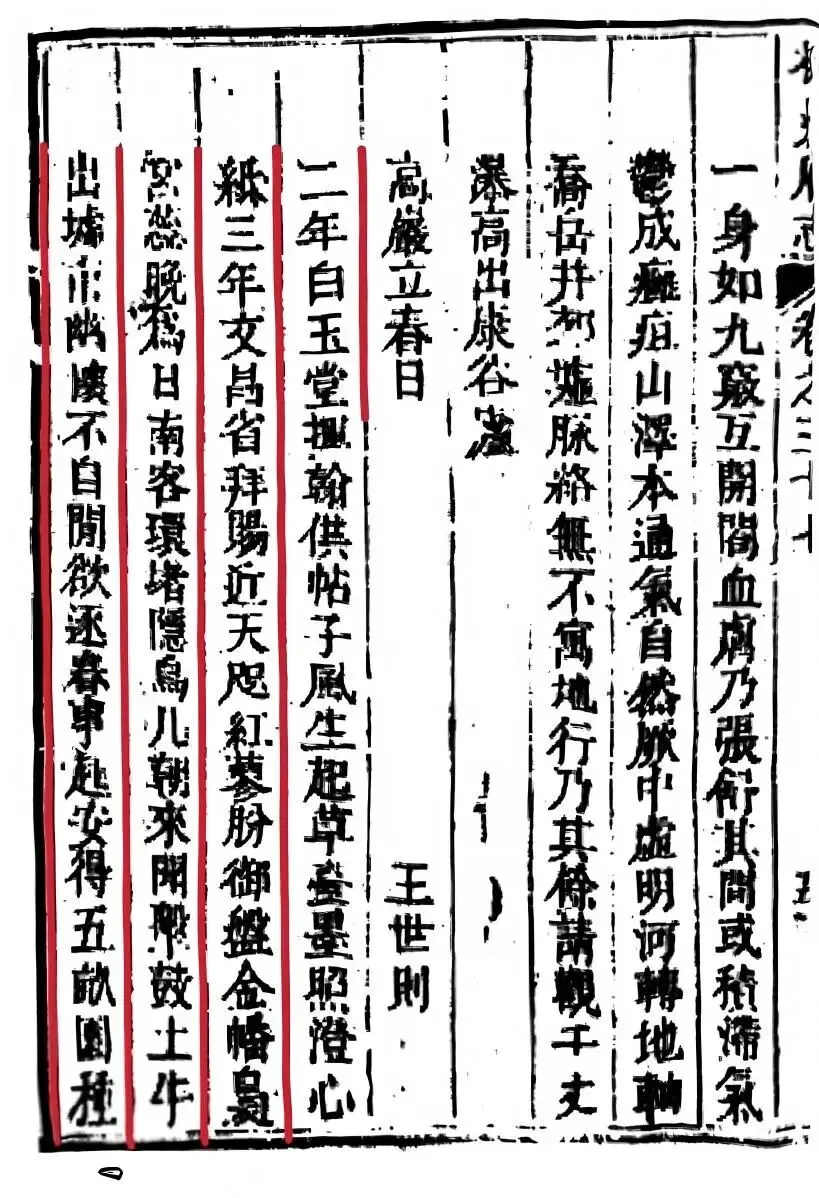 府志 卷之三十 五
一身如九竅互開闔血膚乃張其間或積滯氣
鬱成癰疽山澤本通氣自然厥中虛明河轉地軸
喬岳井脉絡無不寓地行乃其餘請觀千丈
瀑高出康谷
高巖立春日 王世則
二年白玉堂揮翰供帖子風生起草臺墨照澄心
紙三年文昌省拜賜近天咫紅蓼盼御盤金幡裊
宮蕊晚爲日南客環堵隱烏几朝來聞鼓土牛
出墟市幽懷不自閒欲逐春事起安得五畝園種